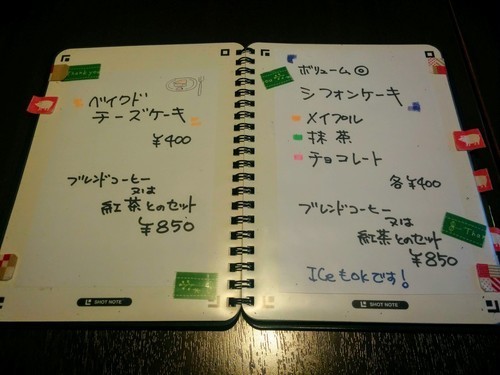 Thank you
ベイクド
チーズケーキ
¥400
ブレンドコーヒー
又は
紅茶とのセット
¥850
SHOT NOTE
ボリューム◎
シフォンケーキ
メイプル
抹茶
チョコレート
各¥400
ブレンドコーヒー
又は
紅茶とのセット
¥850
ICeもokです!
SHOT NOTE